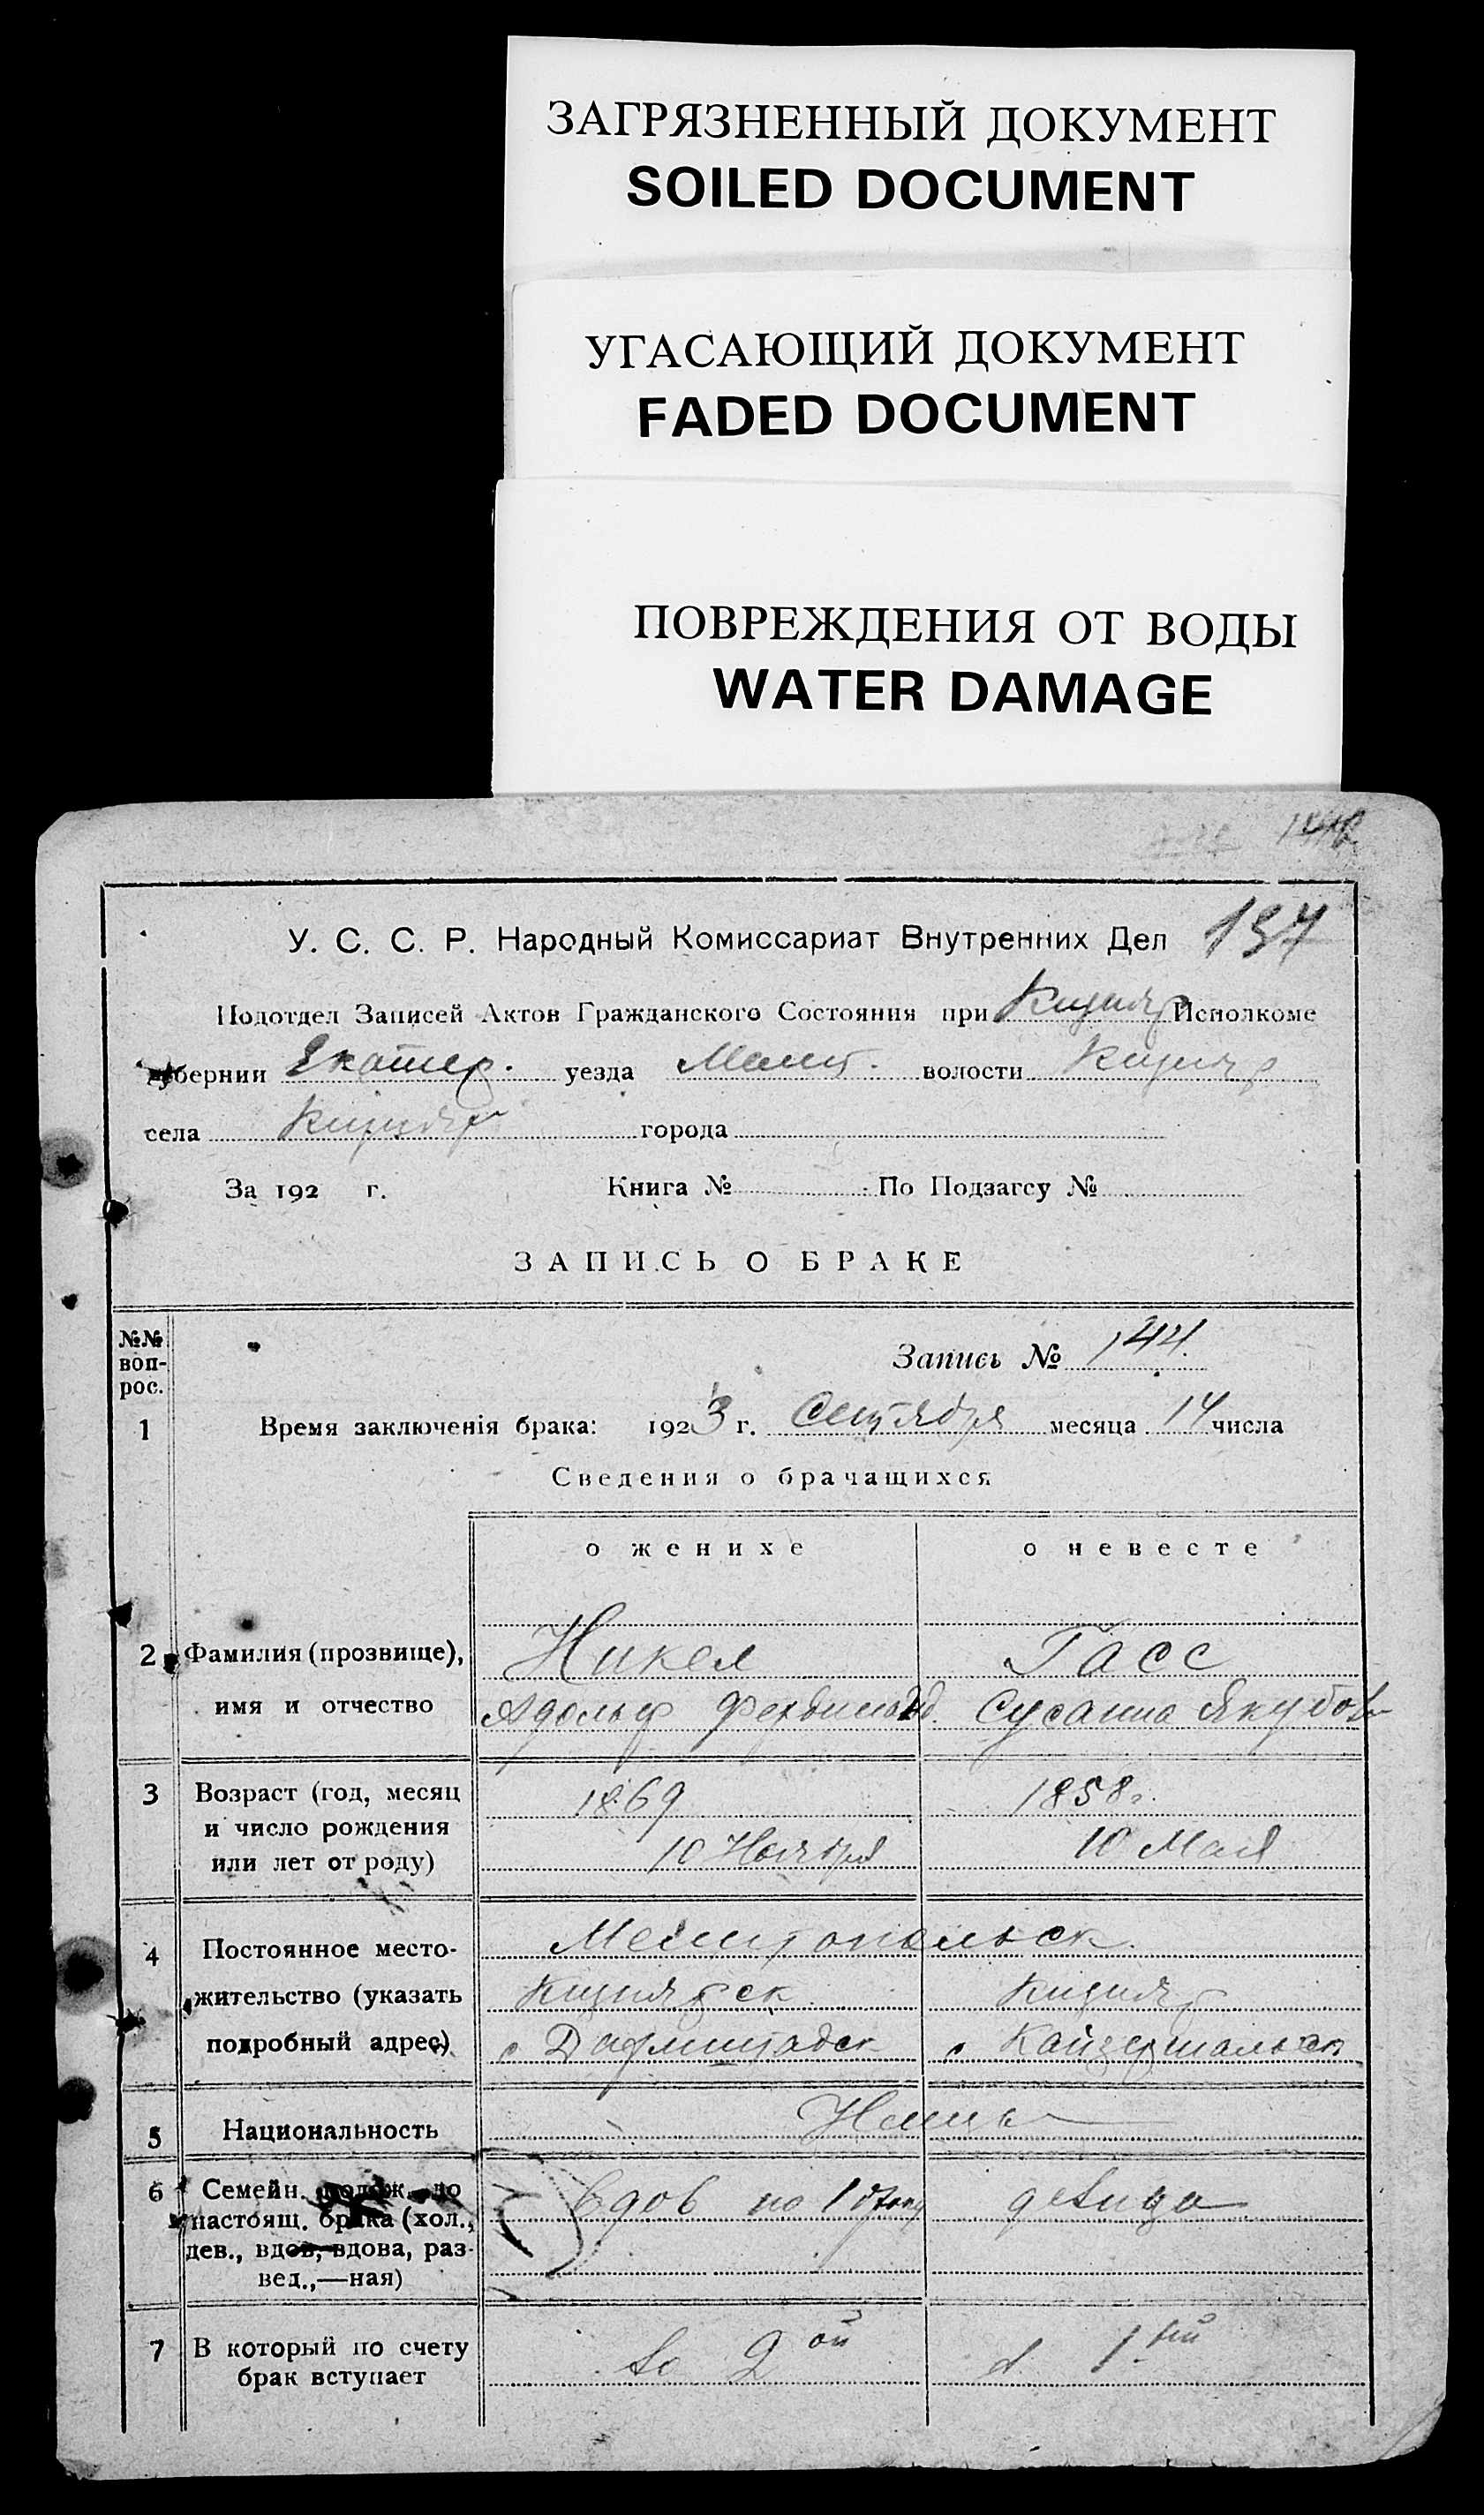 ЗАГРЯЗНЕННЫЙ ДОКУМЕНТ
SOILED DOCUMENT
УГАСАЮЩИЙ ДОКУМЕНТ
FADED DOCUMENT
ПОВРЕЖДЕНИЯ ОТ ВОДЫ
WATER DAMAGE
У. С. С. Р. Народный Комиссариат Внутренних Дел 137
Подотдел Записей Актов Гражданского Состояния при Кизияр Исполкоме
губернии Екатер. уезда Мелит. волости Кизияр
села Кизияр города
За 192 г. Книга № По Подзагсу №
ЗАПИСЬ О БРАКЕ
№№ вопрос.
Запись № 144.
1 Время заключенія брака: 1923 г. Сентября месяца 14 числа
Сведения о брачащихся
о женихе о невесте
2 Фамилия (прозвище), Никел Гасс
имя и отчество Адольф Фердинанд. Сусанна Якубов
3 Возраст (год, месяц 1869 1858г.
и число рождения 10 Ноября 10 Мая
или лет от роду)
4 Постоянное место- Мелитопольск.
жительство (указать Кизиярск. Кизияр
подробный адрес) с Дармштадск с Кайзертальск
5 Национальность Немцы
6 Семейн. полож. до вдов по 1 браку девица
настоящ. брака (хол.,
дев., вдов, вдова, раз-
вед.,—ная)
7 В который по счету во 2ой в 1ый
брак вступает